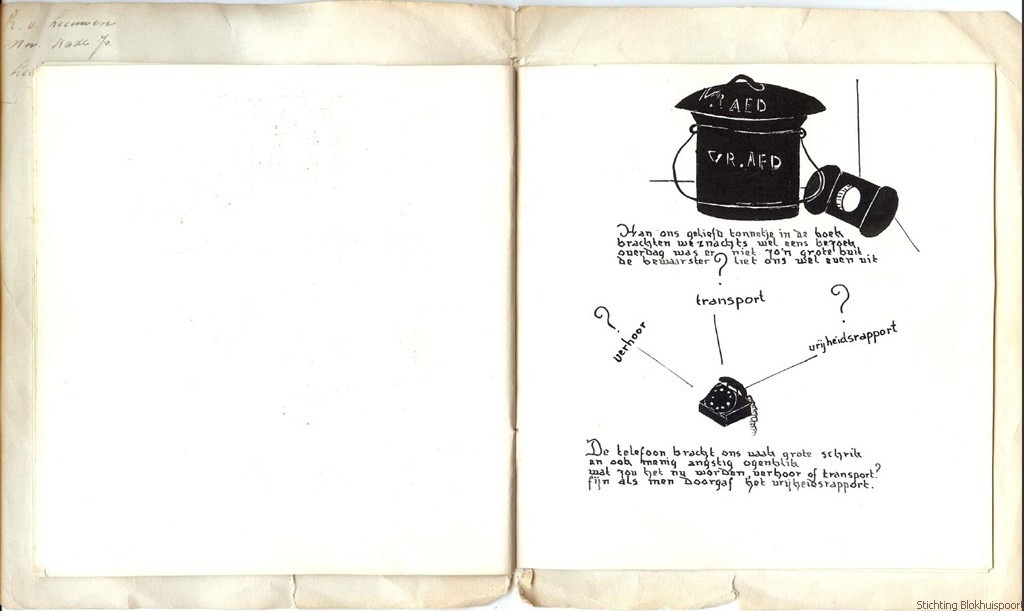 v. Leeuwen
VR. AED
VR. AED
Aan ons geliefd tonnetje in de hoek
brachten we 's nachts wel eens bezoek
overdag was er niet zo'n grote buit
de bewaarster liet ons wel even uit
?
transport
?
verhoor
?
vrijheidsrapport
De telefoon bracht ons vaak grote schrik
en ook menig angstig ogenblik
wat zou het nu worden, verhoor of transport?
fijn als men doorgaf het vrijheidsrapport.
Stichting Blokhuispoort